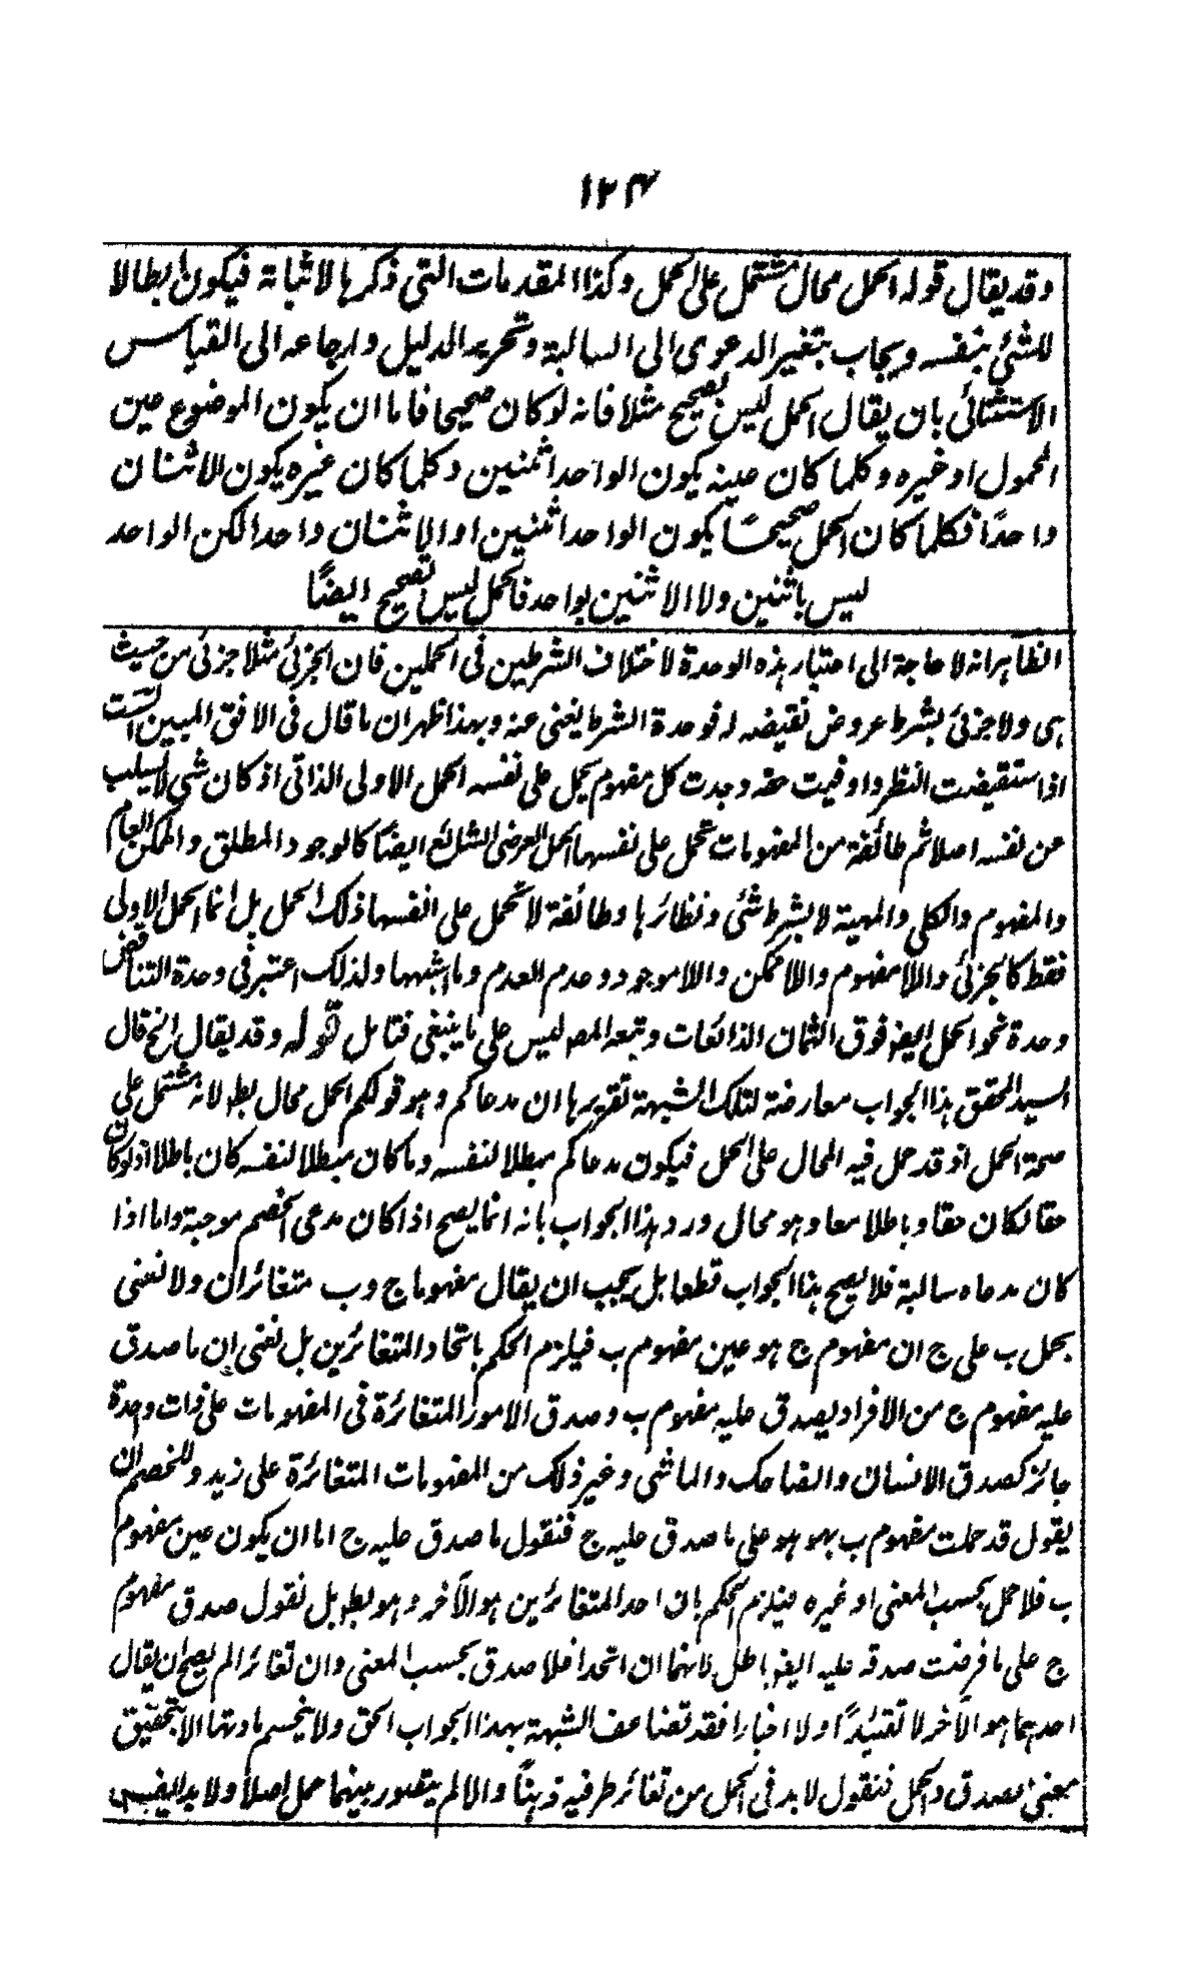 ١٢٤
وقد يقال قوله الحمل محال مشتمل على الحمل وكذا المقدمات التي ذكرها لاثباته فيكون ابطالا
للشئ بنفسه ويجاب بتغيير الدعوى الى السالبة وتحرير الدليل وارجاعه الى القياس
الاستثنائي بان يقال الحمل ليس بصحيح مثلا فانه لو كان صحيحا فاما ان يكون الموضوع عين
المحمول او غيره وكلما كان عينه يكون الواحد اثنين وكلما كان غيره يكون الاثنان
واحدًا فكلما كان الحمل صحيحًا يكون الواحد اثنين او الاثنان واحدا لكن الواحد
ليس باثنين ولا الاثنين بواحد فالحمل ليس بصحيح ايضًا
الظاهر انه لا حاجة الى اعتبار هذه الوحدة لاختلاف الشرطين في الحملين فان الجزئي مثلا جزئي من حيث
هى ولا جزئي بشرط عروض نقيضه له فوحدة الشرط يغنى عنه وبهذا ظهر ان ما قال في الافق المبين الست
اذا ستقيضت النظر واوفيت حقه وجدت كل مفهوم يحمل على نفسه الحمل الاولى الذاتي اذ كان شئ لا يسلب
عن نفسه اصلا ثم طائفة من المفهومات تحمل على نفسها الحمل العرضى الشائع ايضًا كالوجود المطلق والممكن العام
والمفهوم والكلى والمهية لا بشرط شئ ونظائرها وطائفة لا تحمل على انفسها ذلك الحمل بل انما الحمل الاولى
فقط كالجزئي واللا مفهوم واللا ممكن واللا موجود وعدم العدم وما اشبهها ولذلك اعتبر في وحدة التناقض
وحدة نحو الحمل ايضا فوق الثمان الذائعات وتبعه المص ليس على ما ينبغي فتامل قوله وقد يقال الخ قال
السيد المحقق هذا الجواب معارضة لتلك الشبهة تقريرها ان مدعاكم وهو قولكم الحمل محال بط لانه مشتمل على
صحة الحمل اذ قد حمل فيه المحال على الحمل فيكون مدعاكم مبطلا لنفسه وما كان مبطلا لنفسه كان باطلا اذ لو كان
حقا لكان حقا وباطلا معا وهو محال ورد هذا الجواب بانه انما يصح اذا كان مدعى الخصم موجبة واما اذا
كان مدعاه سالبة فلا يصح هذا الجواب قطعا بل يجب ان يقال مفهوما ج و ب متغائران ولا نعنى
بحمل ب على ج ان مفهوم ج هو عين مفهوم ب فيلزم الحكم باتحاد المتغائرين بل نعنى ان ما صدق
عليه مفهوم ج من الافراد يصدق عليه مفهوم ب وصدق الامور المتغائرة في المفهومات على ذات واحدة
جائز كصدق الانسان والضاحك والماشى وغير ذلك من المفهومات المتغائرة على زيد وللخصم ان
يقول قد حملت مفهوم ب بهو هو على ما صدق عليه ج فنقول ما صدق عليه ج اما ان يكون عين مفهوم
ب فلا حمل بحسب المعنى او غيره فيلزم الحكم بان احد المتغائرين هو الآخر وهو بط بل نقول صدق مفهوم
ج على ما فرضت صدقه عليه ايضا باطل لانهما ان اتحدا فلا صدق بحسب المعنى وان تغائرا لم يصح ان يقال
احدهما هو الآخر لا تقييدًا ولا اخبارا فقد تضاعف الشبهة بهذا الجواب الحق ولا ينحسم مادتها الا بتحقيق
معنى الصدق والحمل فنقول لابد في الحمل من تغائر طرفيه ذهنًا والا لم يتصور بينهما حمل اصلا ولابد ايضا